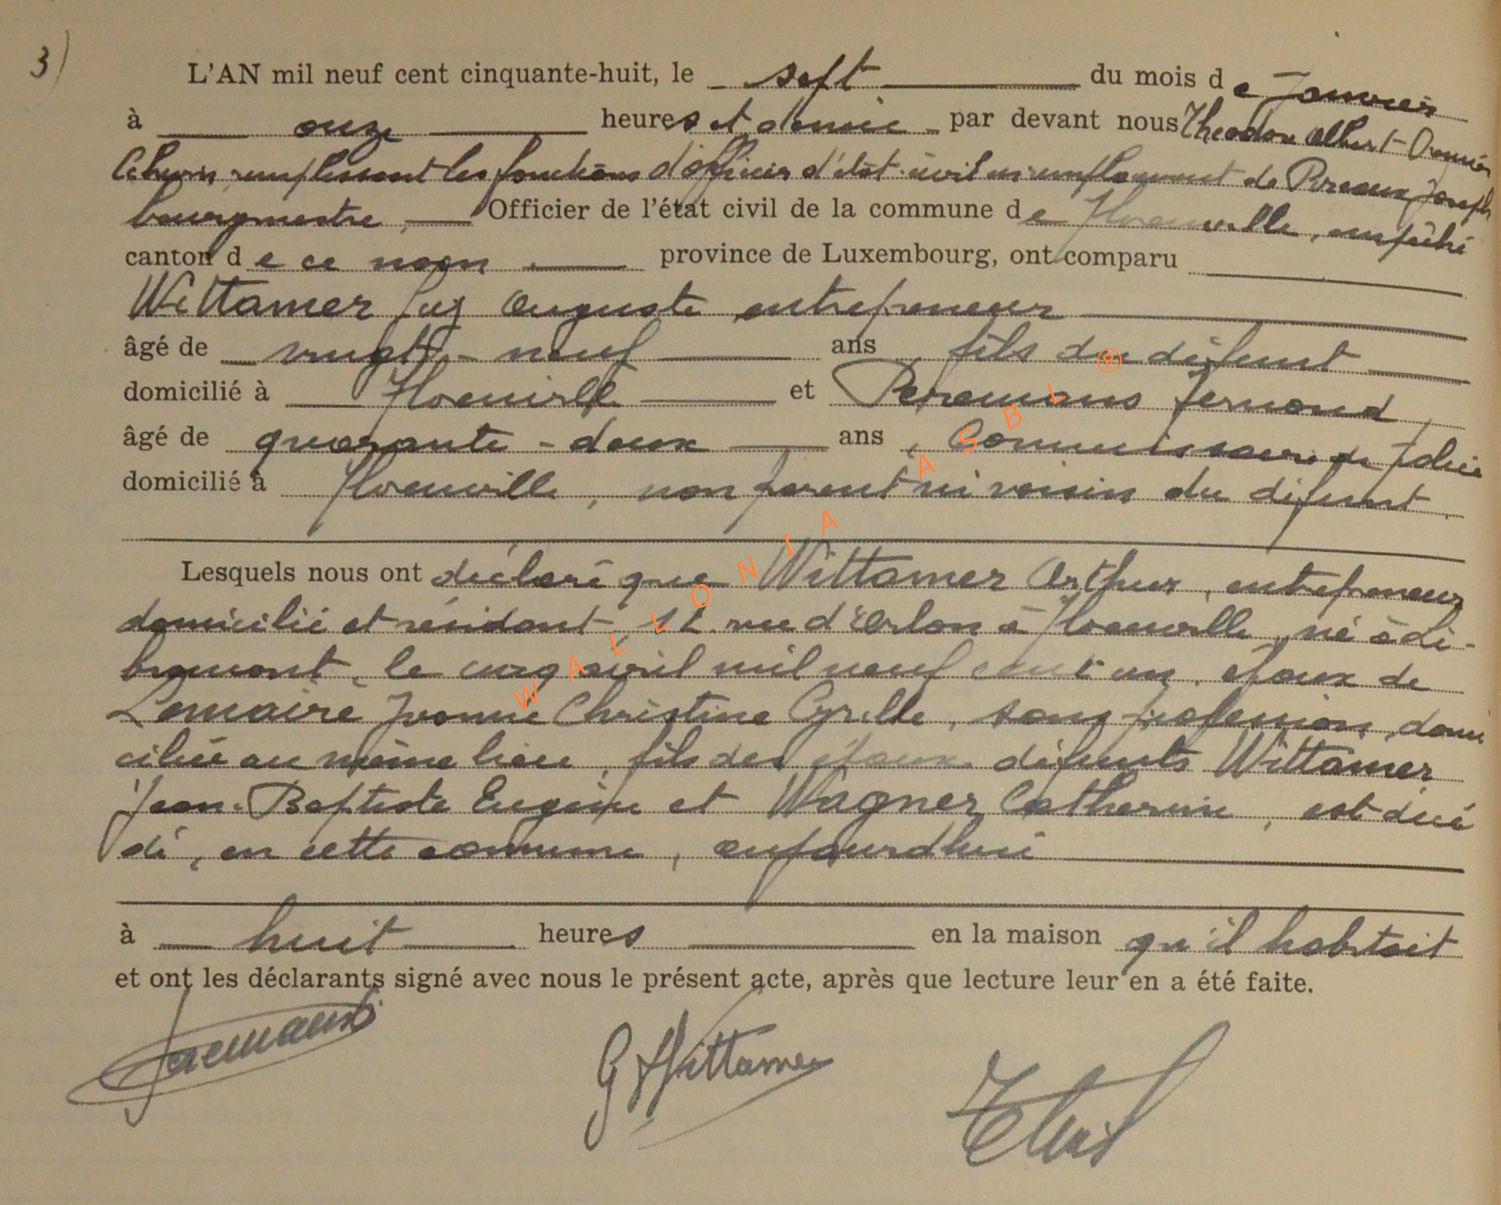 3)
L'AN mil neuf cent cinquante-huit, le sept du mois de Janvier
à onze heures et demie par devant nous Théodore Albert
remplissant les fonctions d'officier d'état-civil en remplacement de Pireaux Joseph
bourgmestre, Officier de l'état civil de la commune de Florenville, empêché
canton de ce nom province de Luxembourg, ont comparu
Wittamer Guy Auguste entrepreneur
âgé de vingt-neuf ans, fils du défunt
domicilié à Florenville et Peremans Fernand,
âgé de quarante-deux ans, Commissaire de Police
domicilié à Florenville, non parent ni voisin du défunt.
Lesquels nous ont déclaré que Wittamer Arthur, entrepreneur
domicilié et résidant, 12 rue d'Arlon à Florenville, né à Li-
bramont, le cinq avril mil neuf cent un, époux de
Lemaire Yvonne Christine Cyrille, sans profession, domi
ciliée au même lieu, fils des époux défunts Wittamer
Jean-Baptiste Eugène et Wagner Catherine, est décé
dé, en cette commune, aujourd'hui
à huit heures en la maison qu'il habitait
et ont les déclarants signé avec nous le présent acte, après que lecture leur en a été faite.
G Wittamer
WALLONIA ASBL ®